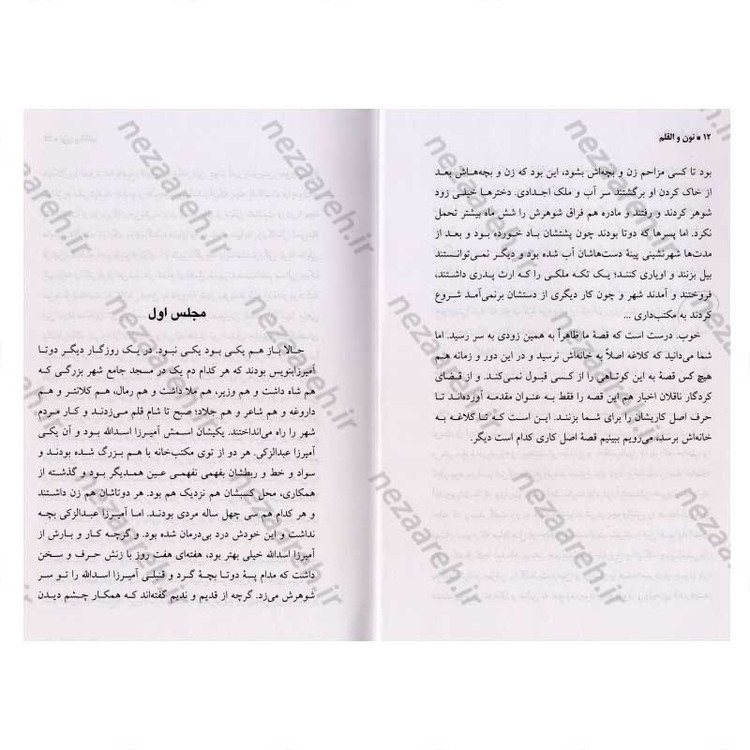 ۱۲ ■ نون و القلم
بود تا کسی مزاحم زن و بچه‌اش بشود، این بود که زن و بچه‌هاش بعد
از خاک کردن او برگشتند سر آب و ملک اجدادی. دخترها خیلی زود
شوهر کردند و رفتند و مادره هم فراق شوهرش را شش ماه بیشتر تحمل
نکرد. اما پسرها که دوتا بودند چون پشتشان باد خورده بود و بعد از
مدت‌ها شهرنشینی پینهٔ دست‌هاشان آب شده بود و دیگر نمی‌توانستند
بیل بزنند و اویاری کنند؛ یک تکه ملکی را که ارث پدری داشتند،
فروختند و آمدند شهر و چون کار دیگری از دستشان برنمی‌آمد شروع
کردند به مکتب‌داری ...
خوب. درست است که قصهٔ ما ظاهراً به همین زودی به سر رسید. اما
شما می‌دانید که کلاغه اصلاً به خانه‌اش نرسید و در این دور و زمانه هم
هیچ کس قصهٔ به این کوتاهی را از کسی قبول نمی‌کند. و از قضای
کردگار ناقلان اخبار هم این قصه را فقط به عنوان مقدمه آورده‌اند تا
حرف اصل کاریشان را برای شما بزنند. این است که تا کلاغه به
خانه‌اش برسد، می‌رویم ببینیم قصهٔ اصل کاری کدام است دیگر.
مجلس اول
حالا باز هم یکی بود یکی نبود. در یک روزگار دیگر دوتا
آمیرزابنویس بودند که هر کدام دم یک در مسجد جامع شهر بزرگی که
هم شاه داشت و هم وزیر، هم ملا داشت و هم رمال، هم کلانتر و هم
داروغه و هم شاعر و هم جلاد؛ صبح تا شام قلم می‌زدند و کار مردم
شهر را راه می‌انداختند. یکیشان اسمش آمیرزا اسدالله بود و آن یکی
آمیرزا عبدالزکی. هر دو از توی مکتب‌خانه با هم بزرگ شده بودند و
سواد و خط و ربطشان بفهمی نفهمی عین همدیگر بود و گذشته از
همکاری، محل کسبشان هم نزدیک هم بود. هر دوتاشان هم زن داشتند
و هر کدام هم سی چهل ساله مردی بودند. اما آمیرزا عبدالزکی بچه
نداشت و این خودش درد بی‌درمان شده بود. و گرچه کار و بارش از
آمیرزا اسدالله خیلی بهتر بود، هفته‌ای هفت روز با زنش حرف و سخن
داشت که مدام پهٔ دوتا بچه گرد و قنبلی آمیرزا اسدالله را تو سر
شوهرش می‌زد. گرچه از قدیم و ندیم گفته‌اند که همکار چشم دیدن
nezaareh.ir
nezaareh.ir
nezaareh.ir
nezaareh.ir
nezaareh.ir
nezaareh.ir
nezaareh.ir